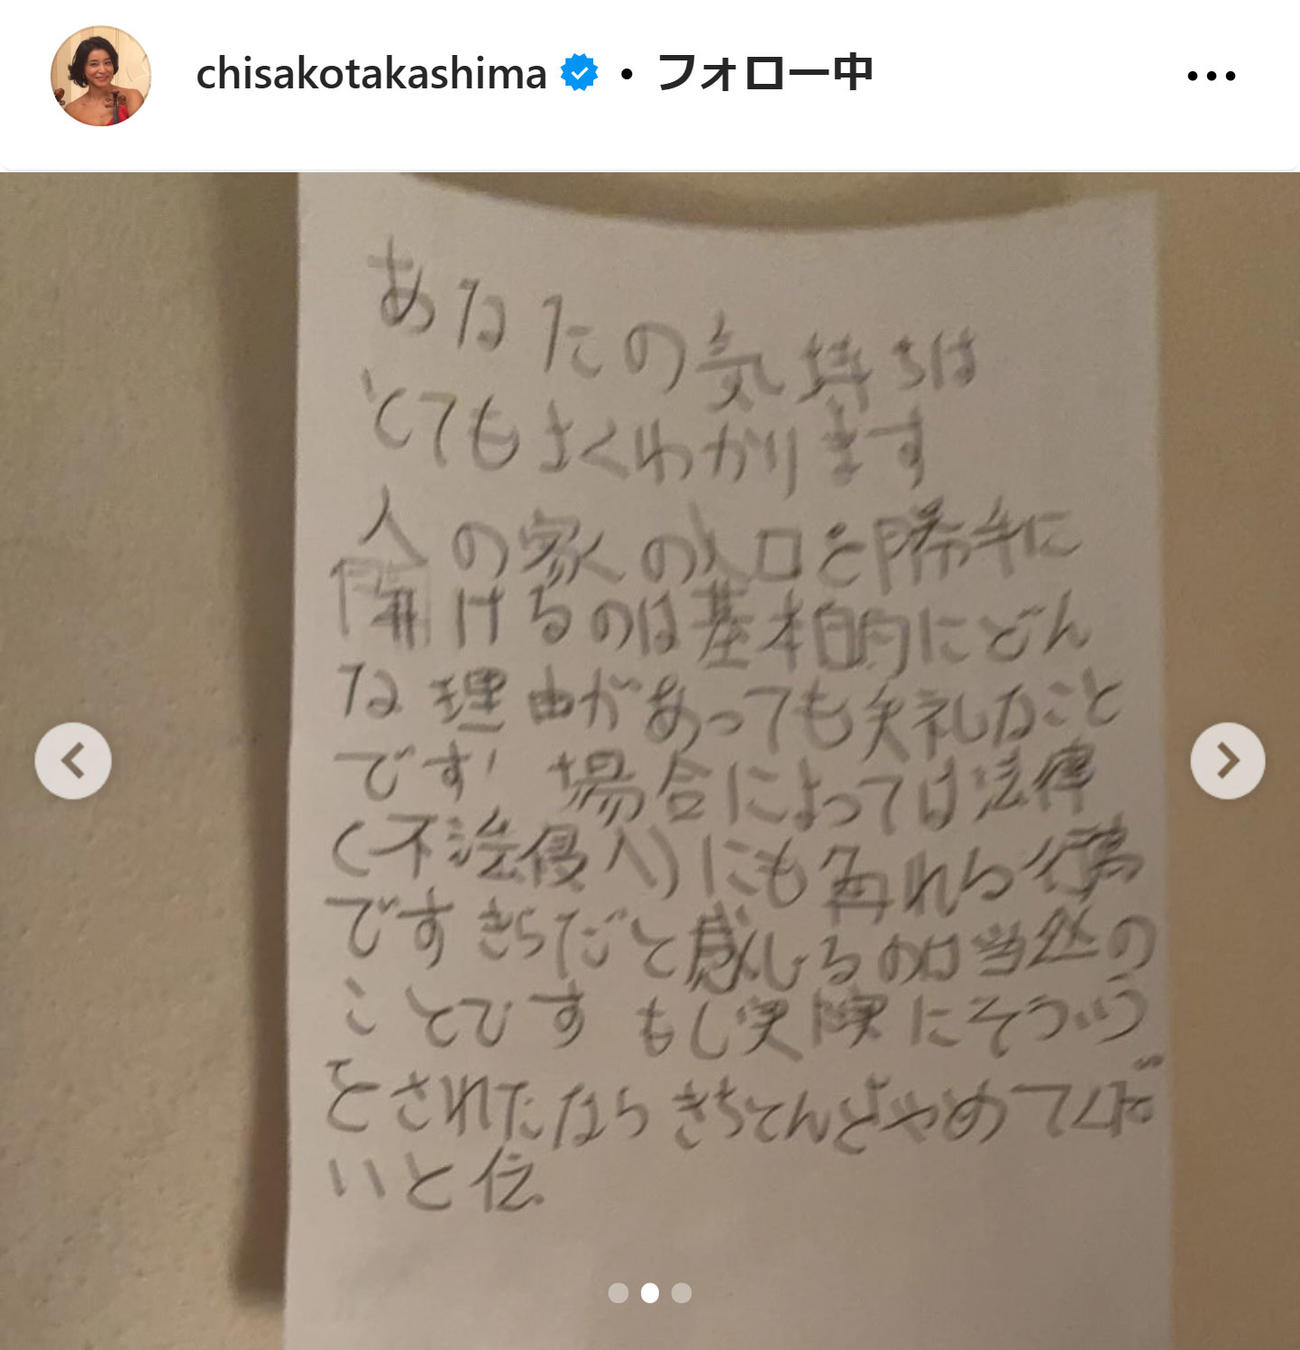 chisakotakashima • フォロー中
あなたの気持ちは
とてもよくわかります
人の家の入口を勝手に
開けるのは基本的にどん
な理由があっても失礼なこと
です! 場合によっては法律
(不法侵入)にも触れる行為
ですきらだと感じるのは当然の
ことです もし実際にそういう
をされたなら きちてんとやめてくだ
いと伝